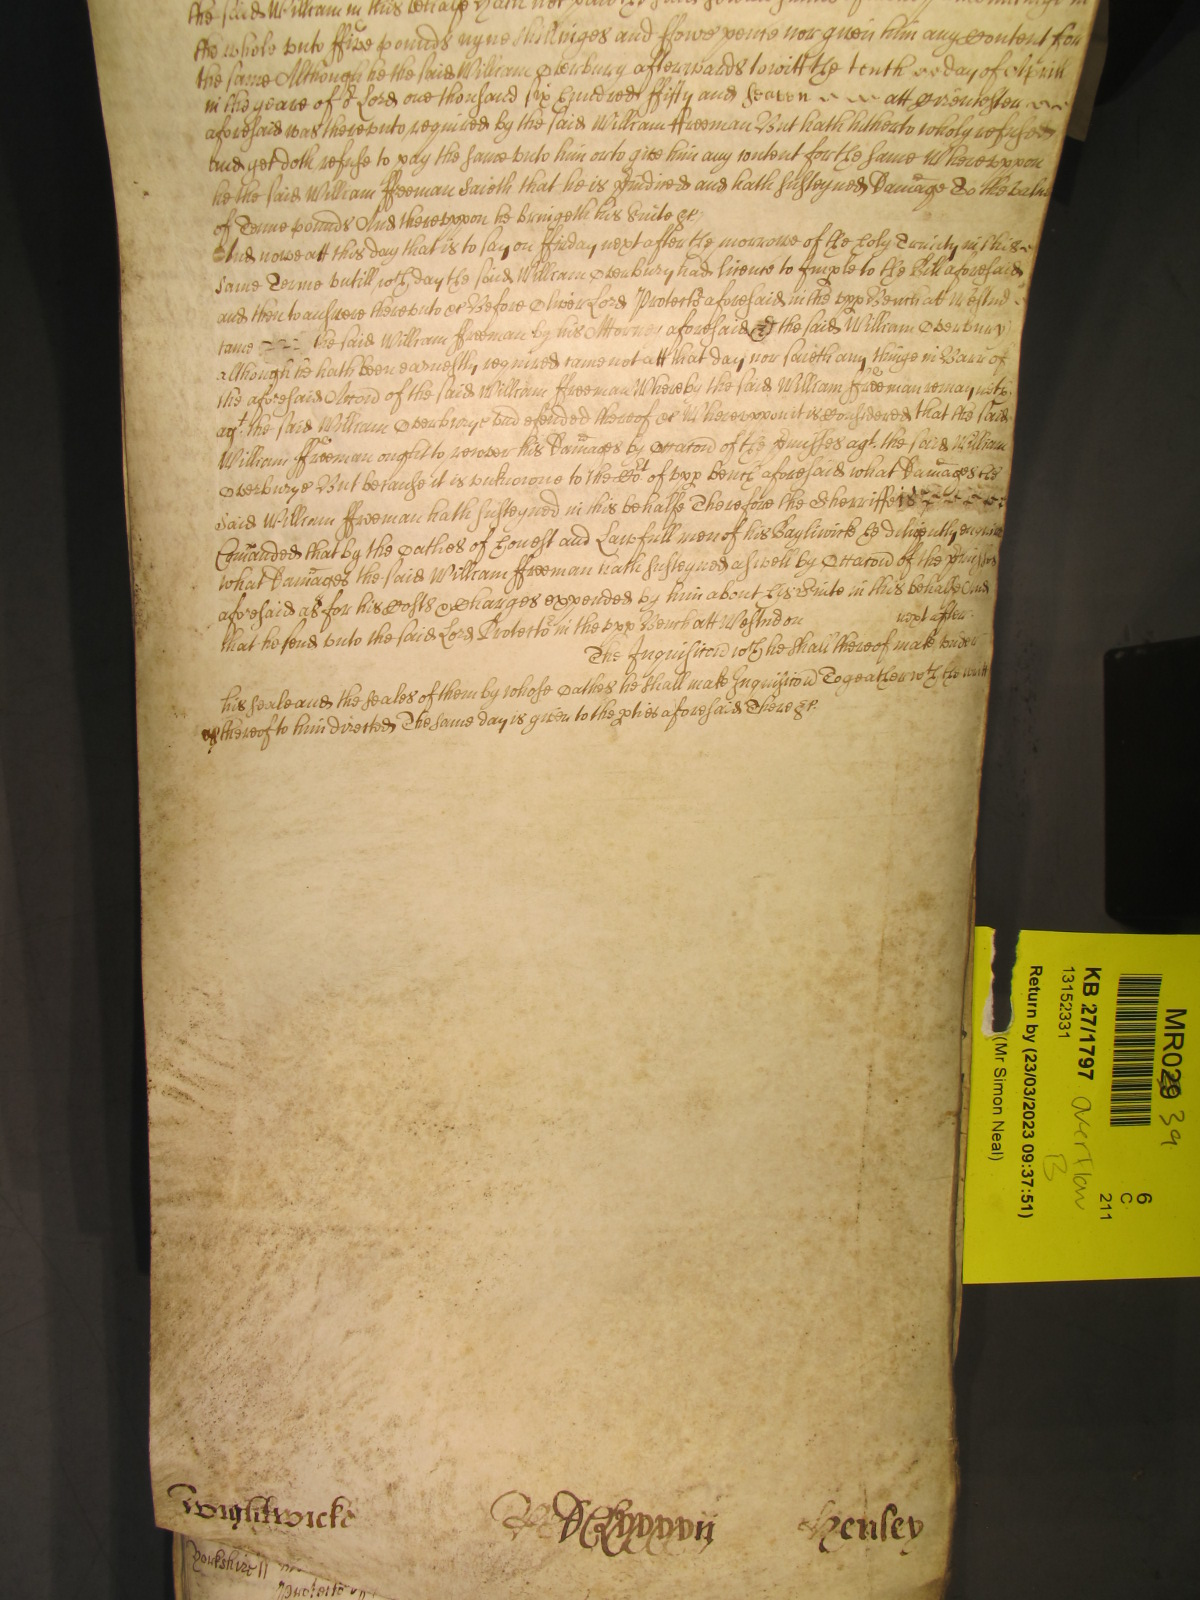 the said William in this behalfe hath not paid
the whole unto ffive pounds nyne shillinges and ffowre pence nor given him any content for
the same Although he the said William Overbury afterwards to witt the tenth day of Aprill
in the yeare of or Lord one thousand six hundred ffifty and seaven att Cirencester
aforesaid was thereunto required by the said William ffreeman But hath hitherto wholy refused
And yet doth refuse to pay the same unto him or to give him any content for the same Whereuppon
he the said William ffreeman saieth that he is Jndired and hath susteyned Damage To the value
of Tenne pounds And thereuppon he bringeth his suite &c
And nowe att this day that is to say on ffriday next after the morrowe of the holy Trinity in this
same Terme untill wch day the said William Overbury had licence to Jmple to the Bill aforesaid
and then to answere thereunto &c Before Oliver Lord Protector aforesaid in the upp Bench att Westmd
came the said William ffreeman by his Attorney aforesaid And the said William Overbury
although he hath been earnestly required came not att that day nor saieth any thinge in Barr of
the aforesaid Accon of the said William ffreeman Whereby the said William ffreeman remayneth
agt the said William Overburye undefended thereof &c Whereuppon it is Considered that the said
William ffreeman ought to recover his Damages by occacon of the premisses agt the said William
Overburye But because it is unknowne to the Cort of upp bench aforesaid what Damages the
said William ffreeman hath susteyned in this behalfe Therefore the Sherriffe is
Comanded that by the Oathes of honest and Lawfull men of his Baylywicke he diligently enquire
what Damages the said William ffreeman hath susteyned aswell by Occacon of the premisses
aforesaid as for his Costs & Charges expended by him about his Suite in this behalfe And
that he send unto the said Lord Protector in the upp Bench att Westmd on next after
The Inquisicon wch he shall thereof make under
his seale and the seales of them by whose Oathes he shall make Inquisicon Togeather wth the writt
thereof to him directed The same day is given to the pties aforesaid There &c.
Wightwicke DClxxxxvij Henley
Yorkshire ss
MR029 39
KB 27/1797 overflow
B
13152331
Return by (23/03/2023 09:37:51)
(Mr Simon Neal)
6
C
211